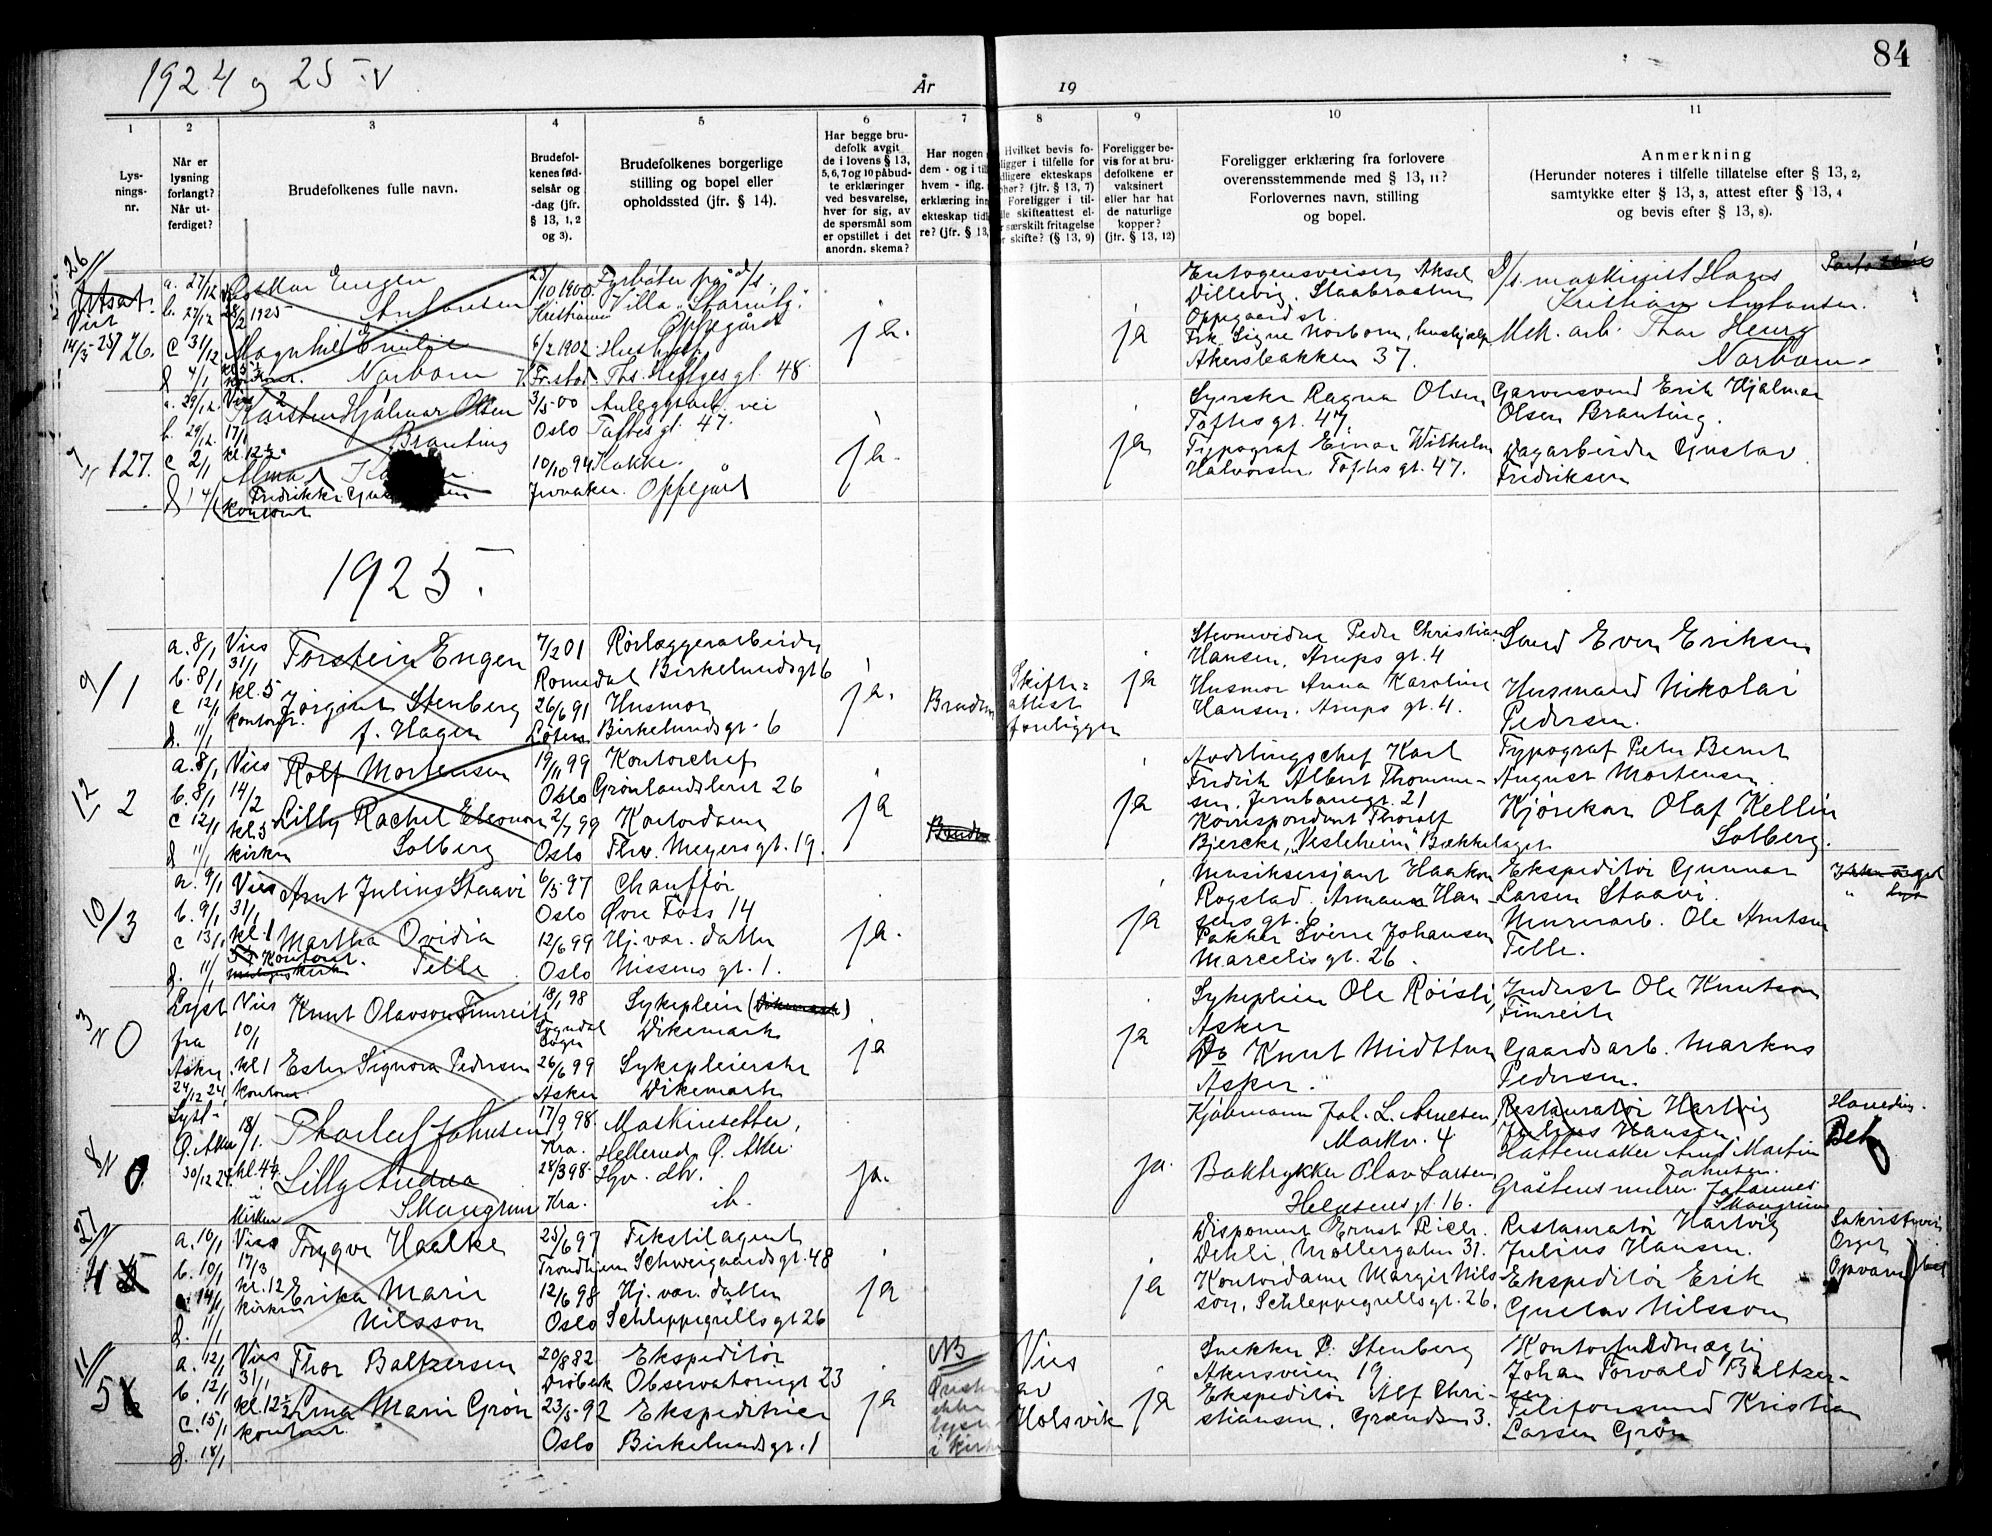 1924 og 25
År
19
84
1
2
3
4
5
6
7
8
9
10
11
Lysnings-nr.
Når er lysning forlangt? Når utferdiget?
Brudefolkenes fulle navn.
Brudefolkenes fødselsår og -dag (jfr. § 13, 1, 2 og 3).
Brudefolkenes borgerlige stilling og bopel eller opholdssted (jfr. § 14).
Har begge brudefolk avgit de i lovens § 13, 5, 6, 7 og 10 påbudte erklæringer ved besvarelse, hver for sig, av de spørsmål som er opstillet i det anordn. skema?
Har nogen
dem - og i til
hvem - iflg.
erklæring inn
ekteskap tidl
re? (jfr. § 13,
Hvilket bevis fo-
ligger i tilfelle for
dligere ekteskaps
phør? (jfr. § 13, 7)
Foreligger i til-
lle skifteattest el-
r særskilt fritagelse
or skifte? (§ 13, 9)
Foreligger bevis for at brudefolkene er vaksinert eller har hat de naturlige kopper? (jfr. § 13, 12)
Foreligger erklæring fra forlovere overensstemmende med § 13, 11? Forlovernes navn, stilling og bopel.
Anmerkning
(Herunder noteres i tilfelle tillatelse efter § 13, 2, samtykke efter § 13, 3, attest efter § 13, 4 og bevis efter § 13, 8).
26
Utsat.
Viet
14/3-25
126.
a. 27/12
b. 27/12
c 31/12
d 4/1
28/2 1925
Oskar Engen
Antonsen
Magnhild Emilie
Norbom
25/10 1900
Kristiania
6/2 1902
Fr.stad
Fyrbøter på d/s.
Oppegård
Hushj.
Ths. Heftyes gt. 48
ja.
ja
Aksel
Oppegaard st.
Frk. Signe Norbom, hushjelp
Akersbakken 37.
d/s. maskinist Hans
Kristian Antonsen.
Mek. arb. Thor Henry
Norbom.
127.
a. 29/12.
b. 29/12.
c 2/1
d 4/1
Vies
17/1
kl. 12½
kontoret
Karsten Hjalmar Olsen
Branting
Alma
Fredrikke
3/5-00
Oslo
10/10 94
Jevnaker.
Anleggsarb. vei
Toftes gt. 47.
Kokke.
Oppegård
ja.
ja
Syerske Ragna Olsen
Toftes gt. 47.
Typograf Einar Wilhelm
Halvorsen. Toftes gt. 47.
Garversvend Erik Hjalmar
Olsen Branting.
Dagarbeider Gustav
Fredriksen
1925.
9/1
a. 8/1
b. 8/1
c 12/1
d. 11/1
Vies
31/1
kl. 5
kontoret.
Torstein Engen
Jørgine Stenberg
f. Hagen
7/2 01
Romedal
26/6 91
Løten
Rørlæggerarbeider
Birkelundsgt 6
Husmor
Birkelundsgt. 6
ja.
Bruden
Skifte=
attest
foreligger
ja
Peder Christian
Hansen, Arups gt. 4
Husmor Anna Karoline
Hansen. Arups gt. 4.
Smed Even Eriksen
Husmand Nikolai
Pedersen.
12
2
a. 8/1
b. 8/1
c 12/1
d 11/1
Vies
14/2
kl. 5
kirken
Rolf Mortensen
Lilly Rachel Eleonore
Solberg
19/11 99
Oslo
2/7 99
Oslo
Kontorchef
Grønlandsleret 26
Kontordame
Thv. Meyers gt. 19.
ja
Bruden
ja
Avdelingschef Karl
Fredrik Albert Thomme-
sen. Jernbanegt. 21
Korrespondent Thoralf
Bjercke, "Vesleheim" Bækkelaget
Typograf Peter Bernt
August Mortensen
Kjørekar Olaf Kellin
Solberg.
10/3
a. 9/1
b. 9/1
c 13/1
d. 11/1
Vies
31/1
kl. 1
Kontoret.
Arnt Julius Staavi
Martha Ovidia
Telle
6/5 97
Oslo
12/6 99
Oslo
Chauffør
Øvre Foss 14
Hj. vær. datter
Nissens gt. 1.
ja.
ja
Musiksersjant Haakon
Rogstad. Armauer Han
sens gt. 6
Pakker Sverre Johansen
Marcelis gt. 26.
Ekspeditør Gunnar
Larsen Staavi.
Murerarb. Ole Arntsen
Telle.
0
Lyst
fra
Asker
24/12 24
Vies
10/1
kl 1
kontoret
Knut Olavson Fimreite
Ester Signora Pedersen
18/1 98
Sogndal
Sogn
26/6 99
Asker
Sykepleier (Dikemark)
Dikemark
Sykepleierske
Dikemark
ja
ja
Sykepleier Ole Röisli,
Asker
Do Knut Midttun
Asker.
Inderst Ole Knutson
Fimreite
Gaardsarb. Markus
Pedersen.
0
Lyst
Ø. Aker
30/12 24.
18/1.
kl. 4
i
kirken
Thorleif Johnsen
Lilly Andrea
Skaugrim
17/9 98.
Kra.
28/3 98.
Kra.
Maskinsetter,
Hellerud Ø. Aker
ib.
ja.
ja.
Kjøbmann Joh. L. Arnesen,
Markv. 4
Boktrykker Olav Larsen
Helgesens gt. 16.
Restauratør Hartvig
Julius Hansen
Hattemaker Arnt Martin
Johnsen.
Johannes
Skaugrim
Bet
4
a. 10/1
b. 10/1
c 14/1
d. 11/1
Vies
17/3
kl. 12
kirken
Trygve Haalke
Erika Marie
Nilsson
25/6 97
Trondhjem
12/6 98
Oslo
Tekstilagent
Schweigaardsgt. 48
Hj. vær. datter
Schleppegrellsgt 26
ja
ja
Disponent Ernst Pierr.
Dehli, Møllergaten 31.
Kontordame Margit Nils-
son. Schleppegrellsgt. 26.
Restauratør Hartvig
Julius Hansen.
Ekspeditør Erik
Gustav Nilsson
Orgel
Opvarm
11/
5
a. 12/1
b. 12/1
c. 15/1
d. 18/1
Vies
31/1
kl. 12½
kontoret.
Thor Baltzersen
Lina Marie Grøn
20/8 82
Drøbak
23/5-92
Oslo
Ekspeditør
Observatoriegt 23
Ekspeditrice
Birkelundsgt. 1
ja
NB
Ønsker
ikke
lysn
i kirken
Vies
av
Holsvik
ja
Snekker P. Stenberg
Akersveien 19
Ekspeditør Alf Chri-
stiansen. Grændsen 3.
Kontorfuldmægtig
Johan Torvald Baltzer-
sen
Telefonsmed Kristian
Larsen Grøn